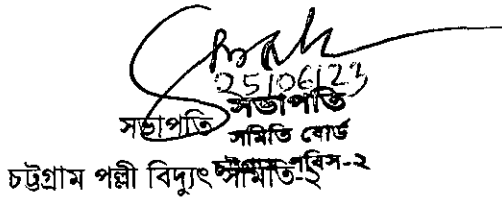 25/06/23
সভাপতি
সভাপতি
সমিতি বোর্ড
চট্টগ্রাম পবিস-২
চট্টগ্রাম পল্লী বিদ্যুৎ সমিতি-২